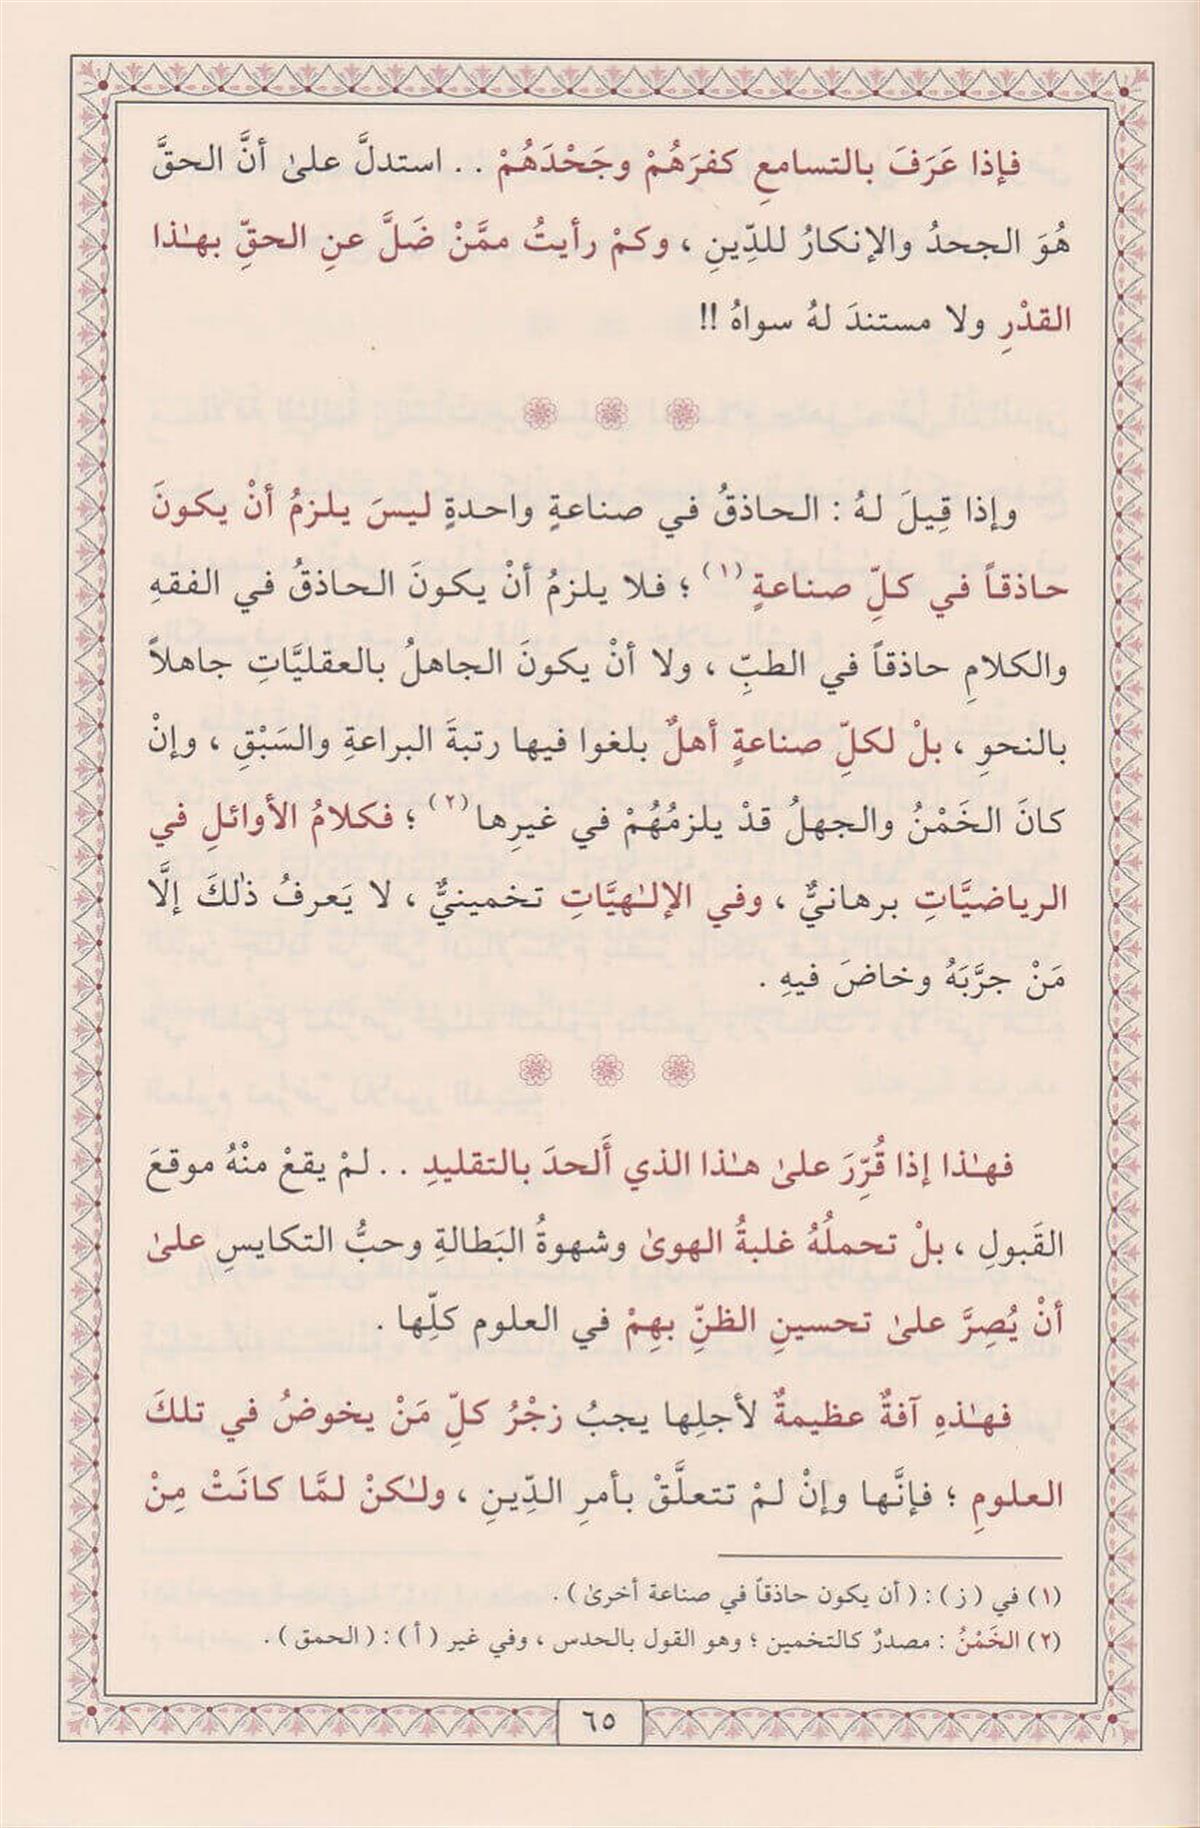 فإذا عَرَفَ بالتسامعِ كفرَهُمْ وجَحْدَهُمْ . . استدلَّ علىٰ أنَّ الحقَّ
هُوَ الجحدُ والإنكارُ للدِّينِ ، وكمْ رأيتُ ممَّنْ ضَلَّ عنِ الحقِّ بهـٰذا
القدْرِ ولا مستندَ لهُ سواهُ !!
وإذا قِيلَ لهُ : الحاذقُ في صناعةٍ واحدةٍ ليسَ يلزمُ أنْ يكونَ
حاذقاً في كلِّ صناعةٍ (١) ؛ فلا يلزمُ أنْ يكونَ الحاذقُ في الفقهِ
والكلامِ حاذقاً في الطبِّ ، ولا أنْ يكونَ الجاهلُ بالعقليَّاتِ جاهلاً
بالنحوِ ، بلْ لكلِّ صناعةٍ أهلٌ بلغوا فيها رتبةَ البراعةِ والسَبْقِ ، وإنْ
كانَ الخَمْنُ والجهلُ قدْ يلزمُهُمْ في غيرِها (٢) ؛ فكلامُ الأوائلِ في
الرياضيَّاتِ برهانيٌّ ، وفي الإلـٰهيَّاتِ تخمينيٌّ ، لا يَعرفُ ذٰلكَ إلَّا
مَنْ جرَّبَهُ وخاضَ فيهِ .
فهـٰذا إذا قُرِّرَ علىٰ هـٰذا الذي أَلحدَ بالتقليدِ . . لمْ يقعْ منْهُ موقعَ
القَبولِ ، بلْ تحملُهُ غلبةُ الهوىٰ وشهوةُ البَطالةِ وحبُّ التكايسِ علىٰ
أنْ يُصِرَّ علىٰ تحسينِ الظنِّ بهِمْ في العلوم كلِّها .
فهـٰذهِ آفةٌ عظيمةٌ لأجلِها يجبُ زجْرُ كلِّ مَنْ يخوضُ في تلكَ
العلومِ ؛ فإنَّها وإنْ لمْ تتعلَّقْ بأمرِ الدِّينِ ، ولـٰكنْ لمَّا كانَتْ مِنْ
(١) في ( ز ) : ( أن يكون حاذقاً في صناعة أخرىٰ ) .
(٢) الخَمْنُ : مصدرٌ كالتخمين ؛ وهو القول بالحدس ، وفي غير ( أ ) : ( الحمق ) .
٦٥